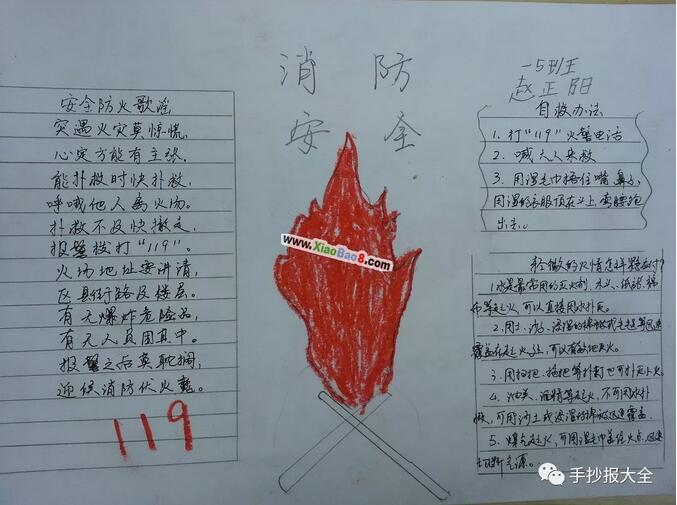 消防
安全
一5班
赵正阳
安全防火歌谣
突遇火灾莫惊慌,
心定方能有主张。
能扑救时快扑救,
呼哦他人离火场。
扑救不及快撤走,
报警拨打“119”。
火场地址要讲清,
区县街路及楼层。
有无爆炸危险品,
有无人员困其中。
报警之后莫耽搁,
迎候消防伏火魔。
119
自救办法
1. 打“119”火警电话
2. 喊大人来救
3. 用湿毛巾捂住嘴、鼻子,
用湿的衣服顶在头上,弯腰跑
出去。
轻微的火情怎样
1.水是最常用的灭火剂,木头、纸张、棉
布等起火,可以直接用水扑灭。
2.用土、沙、浸湿的棉被或毛毯等迅速
覆盖在起火处,可以有效地灭火。
3.用扫把、拖把等扑打也可扑灭小火
4.油类、酒精等起火,不可用水扑
救,可用沙土或浸湿的棉被迅速覆盖.
5.煤气起火,可用湿毛巾盖住火点,迅速
切断气源。
www.XiaoBao8.com
手抄报大全